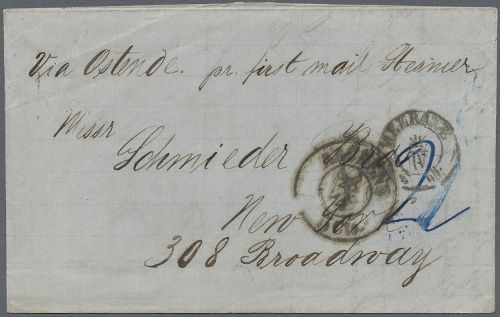 Via Ostende. pr. first mail Stemer
Messr
Schmieder Bros
New York
308 Broadway
2